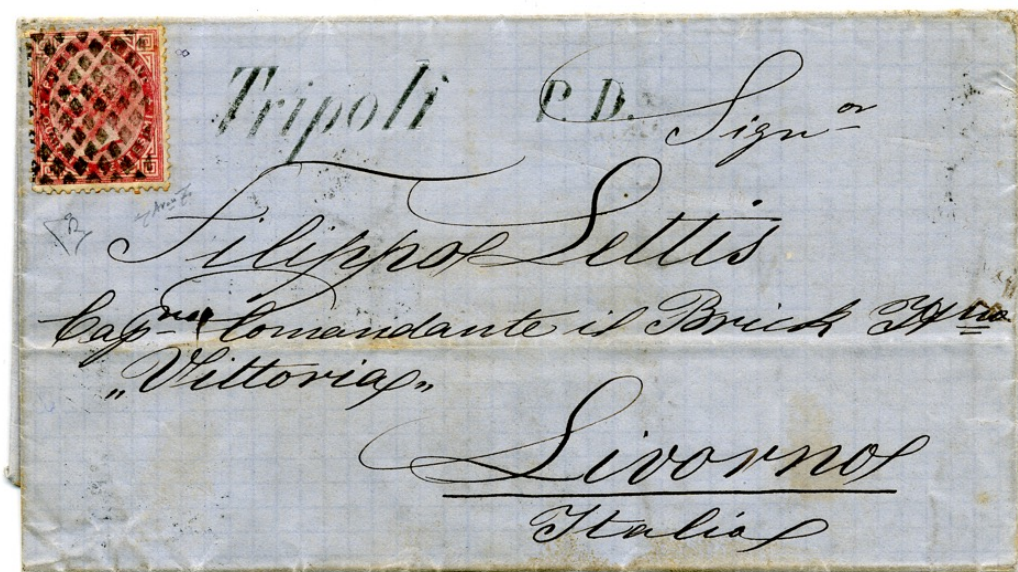 Tripoli P. D.
Sign.or
Filippo Lettis
Cap.no Comandante il Brick
„Vittoria„
Livorno
Italia